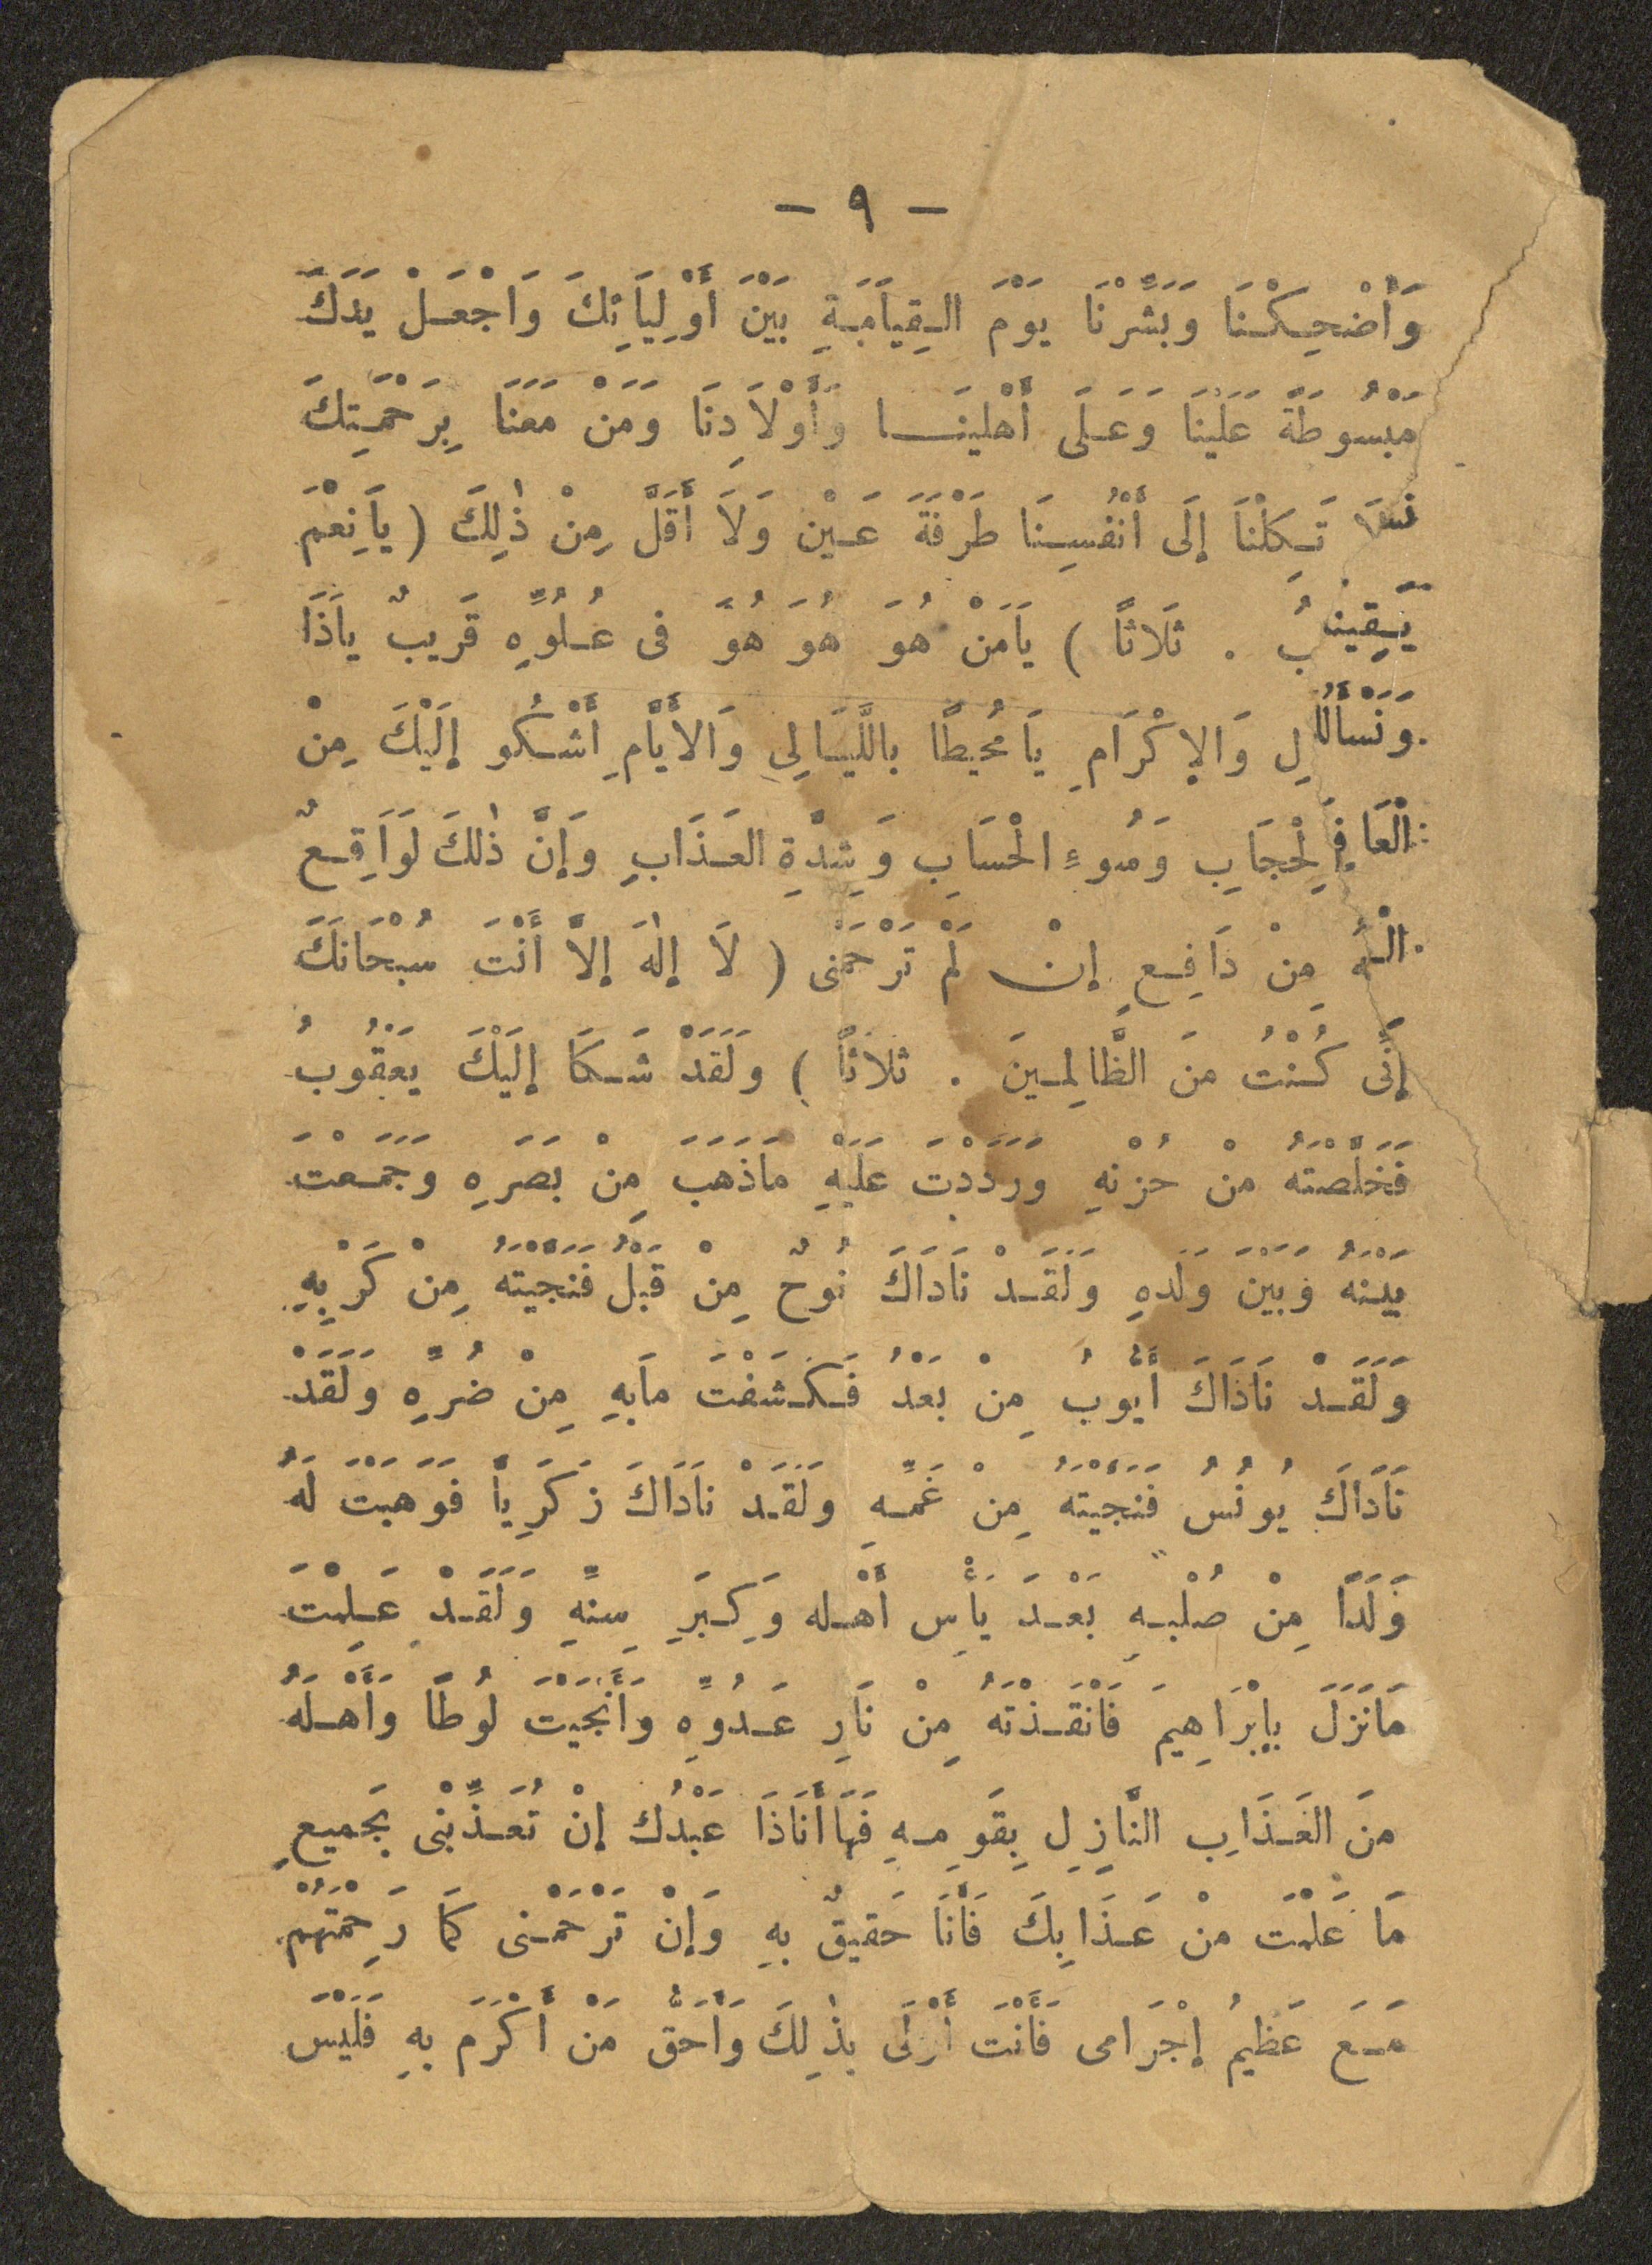 – ٩ –
وَأَضْحِكْنَا وَبَشِّرْنَا يَوْمَ الْقِيَامَةِ بَيْنَ أَوْلِيَائِكَ وَاجْعَلْ يَدَكَ
مَبْسُوطَةً عَلَيْنَا وَعَلَى أَهْلِينَا وَأَوْلَادِنَا وَمَنْ مَعَنَا بِرَحْمَتِكَ
تَكِلْنَا إِلَى أَنْفُسِنَا طَرْفَةَ عَيْنٍ وَلَا أَقَلَّ مِنْ ذٰلِكَ ( يَانِعْمَ
بُ . ثَلَاثًا ) يَامَنْ هُوَ هُوَ هُوَ فى عُلُوِّهِ قَرِيبٌ يَاذَا
لِ وَالإِكْرَامِ يَا مُحِيطًا بِاللَّيَالِى وَالأَيَّامِ أَشْكُو إِلَيْكَ مِنْ
لْحِجَابِ وَسُوءِ الْحسَابِ وَشِدَّةِ الْعَذَابِ وَإِنَّ ذٰلِكَ لَوَاقِعٌ
مِنْ دَافِعٍ إِنْ لَمْ تَرْحَمْنى ( لَا إِلٰهَ إِلَّا أَنْتَ سُبْحَانَكَ
إِنِّى كُنْتُ مِنَ الظَّالِمِينَ . ثَلاثًا ) وَلَقَدْ شَكَا إِلَيْكَ يَعْقُوبُ
فَخَلَّصْتَهُ مِنْ حُزْنِهِ وَرَدَدْتَ عَلَيْهِ مَاذَهَبَ مِنْ بَصَرِهِ وَجَمَعْتَ
بَيْنَهُ وَبَيْنَ وَلَدِهِ وَلَقَدْ نَادَاكَ نُوحٌ مِنْ قَبْلُ فَنَجَّيْتَهُ مِنْ كَرْبِهِ
وَلَقَدْ نَادَاكَ أَيُّوبُ مِنْ بَعْدُ فَكَشَفْتَ مَابِهِ مِنْ ضُرِّهِ وَلَقَدْ
نَادَاكَ يُونُسُ فَنَجَّيْتَهُ مِنْ غَمِّهِ وَلَقَدْ نَادَاكَ زَكَرِيَّا فَوَهَبْتَ لَهُ
وَلَدًا مِنْ صُلْبِهِ بَعْدَ يَأْسِ أَهْلِهِ وَكِبَرِ سِنِّهِ وَلَقَدْ عَلِمْتَ
مَانَزَلَ بِإِبْرَاهِيمَ فَانْقَذْتَهُ مِنْ نَارِ عَدُوِّهِ وَأَنْجَيْتَ لُوطًا وَأَهْلَهُ
مِنَ الْعَذَابِ النَّازِلِ بِقَوْمِهِ فَهَا أَنَاذَا عَبْدُكَ إِنْ تُعَذِّبْنِى بِجَمِيعِ
مَا عَلِمْتَ مِنْ عَذَابِكَ فَأَنَا حَقِيقٌ بِهِ وَإِنْ تَرْحَمْنى كَمَا رَحِمْتَهُمْ
مَعَ عَظِيمِ إِجْرَامى فَأَنْتَ أَوْلَى بِذٰلِكَ وَأَحَقُّ مَنْ أَكْرَمَ بِهِ فَلَيْسَ